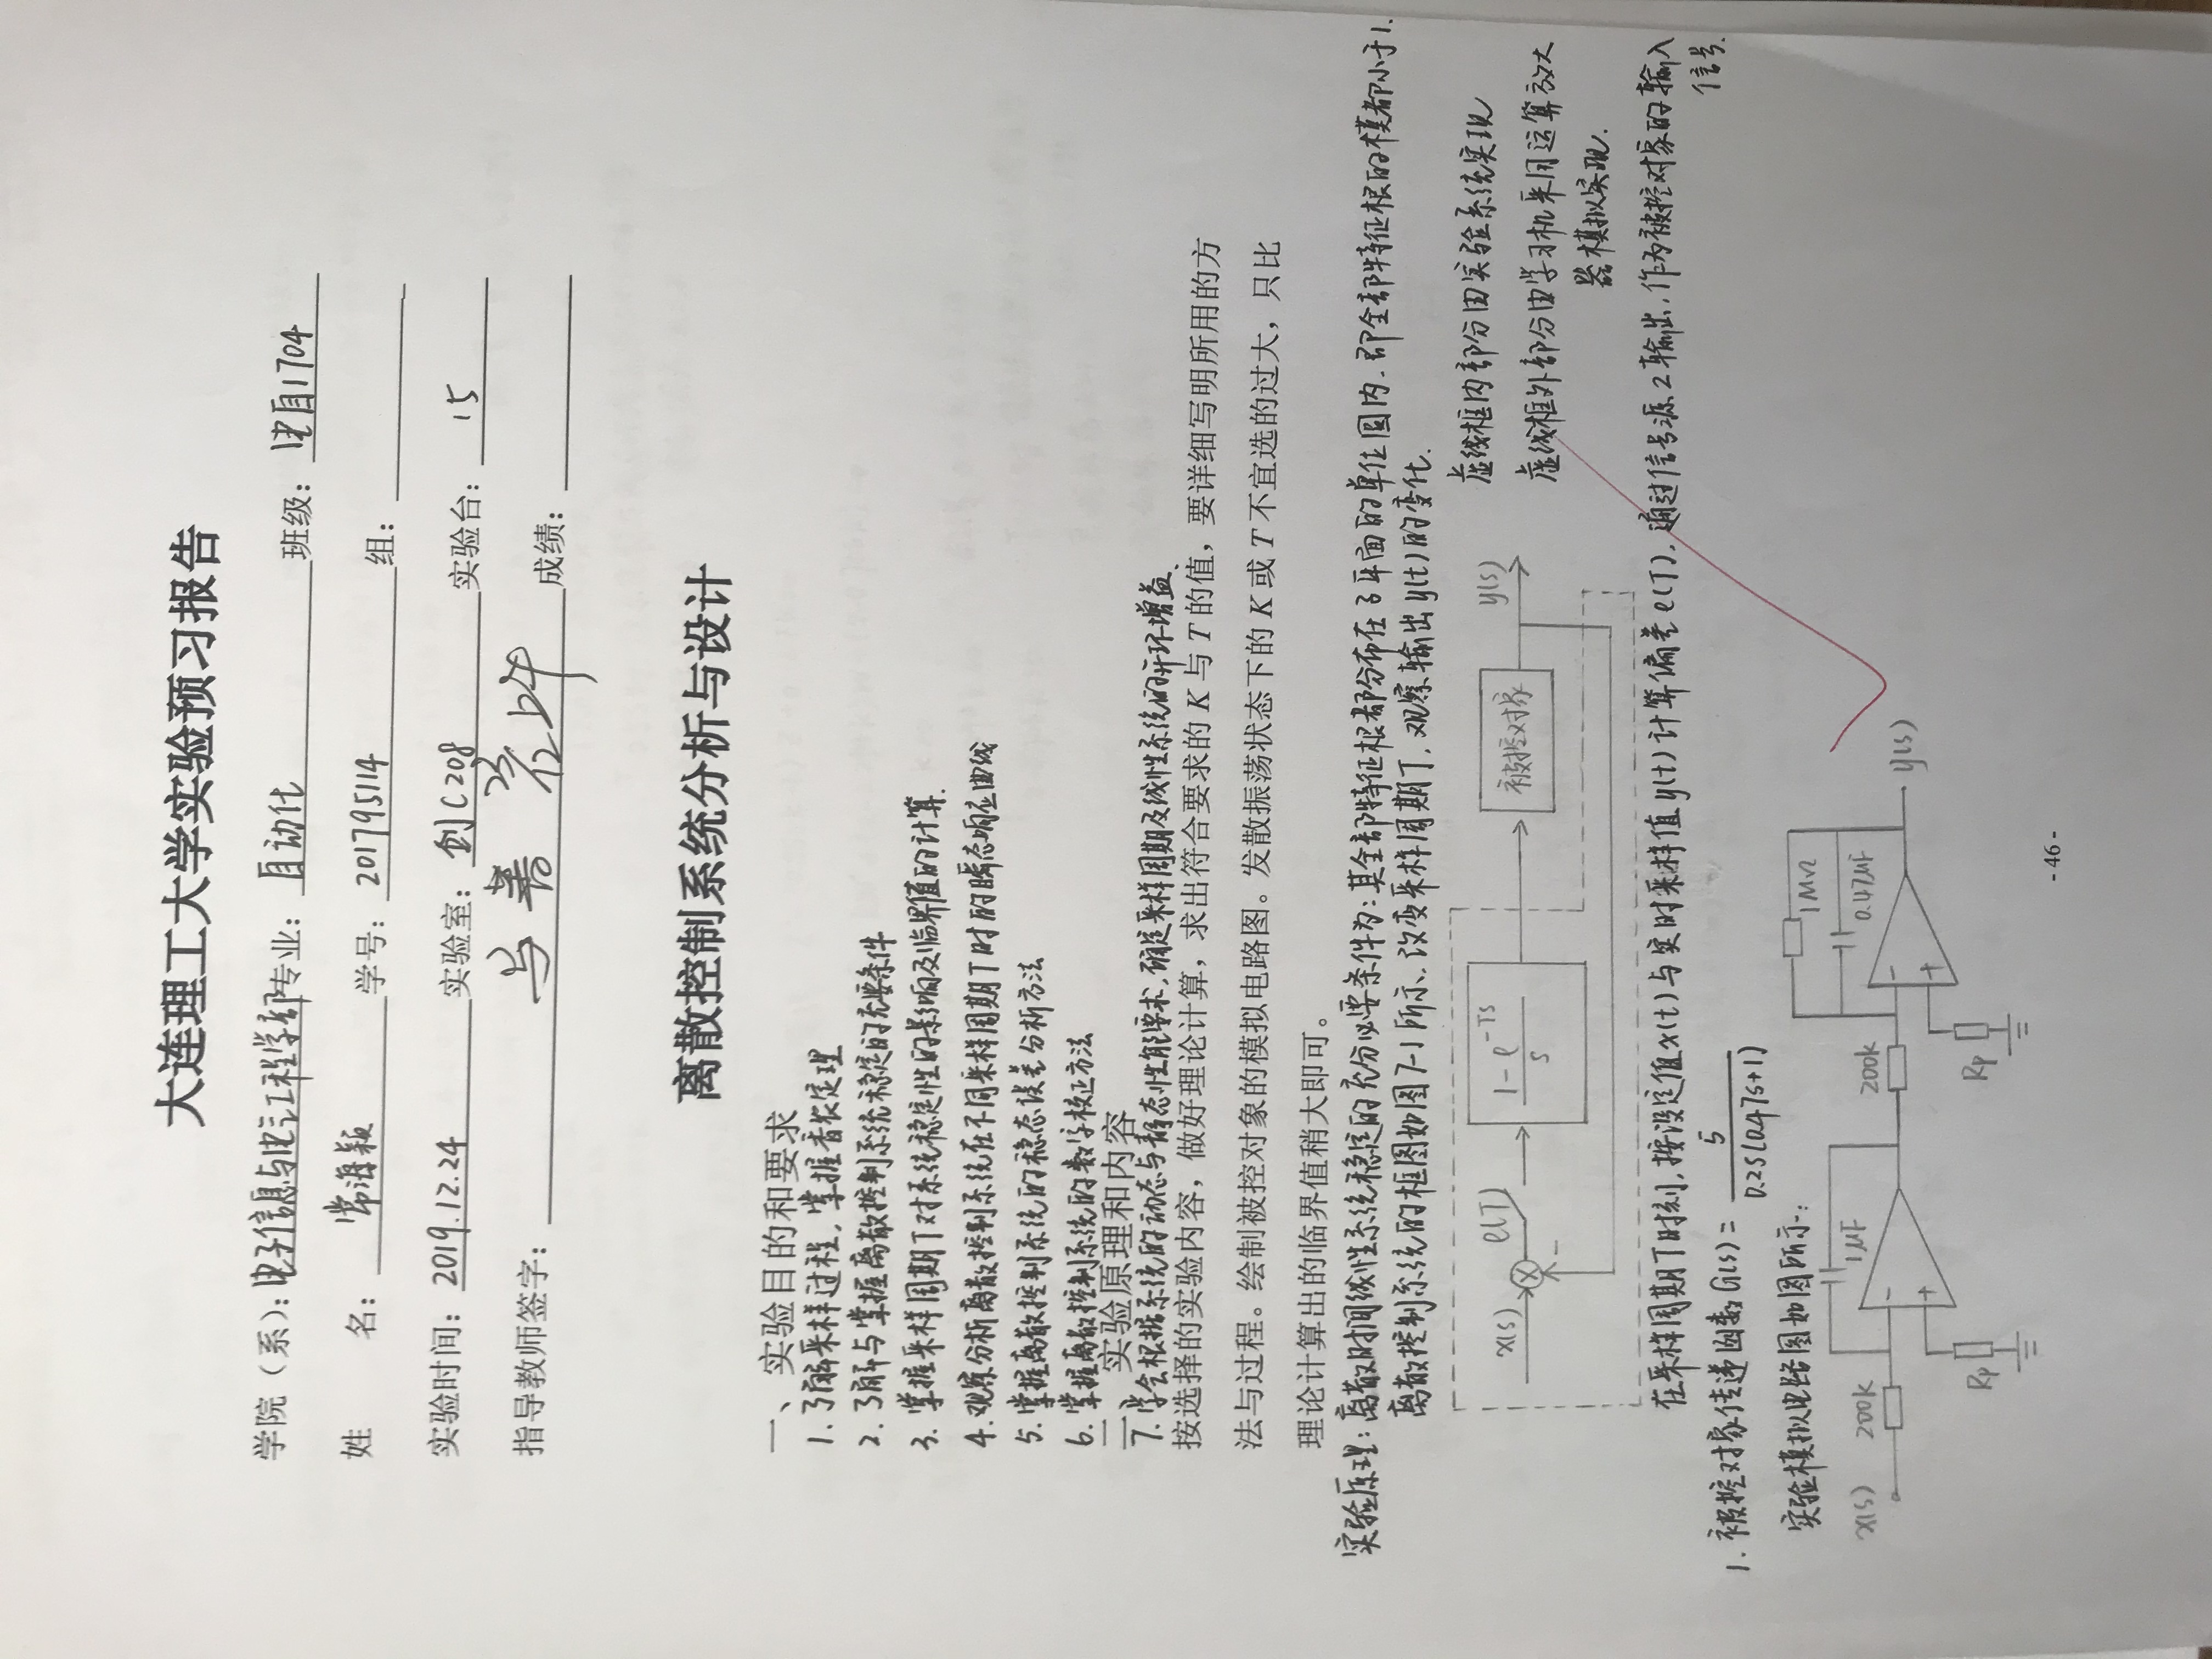 大连理工大学实验预习报告
学院（系）：电子信息与电气工程学部 专业：自动化 班级：电自1704
姓 名：常海颖 学号：201795114 组：
实验时间：2019.12.24 实验室：创C208 实验台：15
指导教师签字： 成绩：
离散控制系统分析与设计
一、实验目的和要求
1. 了解采样过程，掌握香农定理
2. 了解与掌握离散控制系统稳定的充要条件
3. 掌握采样周期T对系统稳定性的影响及临界值的计算.
4. 观察分析离散控制系统在不同采样周期T时的瞬态响应曲线
5. 掌握离散控制系统的稳态误差分析方法
6. 掌握离散控制系统的数字校正方法
二、实验原理和内容
7. 学会根据系统的动态与静态性能要求，确定采样周期及线性系统的开环增益.
按选择的实验内容，做好理论计算，求出符合要求的 K 与 T 的值，要详细写明所用的方
法与过程。绘制被控对象的模拟电路图。发散振荡状态下的 K 或 T 不宜选的过大，只比
理论计算出的临界值稍大即可。
实验原理：离散时间线性系统稳定的充分必要条件为：其全部特征根都分布在z平面的单位圆内，即全部特征根的模都小于1.
离散控制系统的框图如图7-1所示. 改变采样周期T，观察输出y(t)的变化.
x(s) e(T) 1-e^{-Ts} / s 被控对象 y(s)
-
虚线框内部分由实验系统实现
虚线框外部分由学习机采用运算放大
器模拟实现.
在采样周期T时刻，按设定值x(t)与实时采样值y(t)计算偏差e(T)，通过信号源2输出，作为被控对象的输入
信号.
1. 被控对象传递函数G(s) = 5 / 0.2s(0.47s+1)
实验模拟电路图如图所示：
x(s) 200k 1μF - + Rp
200k 1MΩ 0.47μF - + Rp y(s)
- 46 -